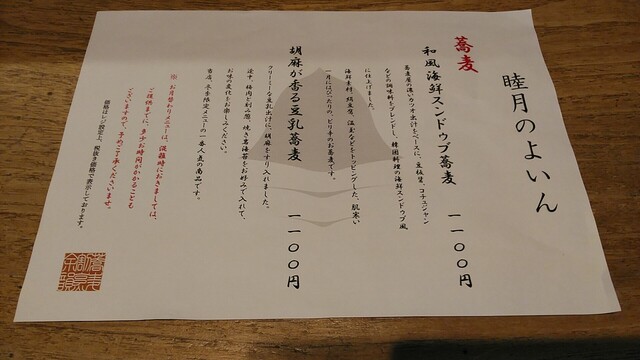 睦月のよいん
蕎麦
和風海鮮スンドゥブ蕎麦 一一〇〇円
蕎麦屋の濃いカツオ出汁をベースに、豆板醤、コチュジャン
などの調味料をブレンドし、韓国料理の海鮮スンドゥブ風
に仕上げました。
海鮮香料、絹豆腐、温玉などをトッピングした、肌寒い
一月にはぴったりの、ピリ辛のお蕎麦です。
胡麻が香る豆乳蕎麦 一一〇〇円
クリーミーな豆乳出汁に、胡麻をすり入れました。
途中、梅肉と刻み葱、焼き岩海苔をお好みで入れて、
お味の変化をお楽しみください。
当店、冬季限定メニューの一番人気の商品です。
※ お月替わりメニューは、混雑時におきましては、
ご提供までに、多少お時間がかかることも
ございますので、予めご了承くださいませ。
価格はレジ設定上、税抜き価格で表示しております。